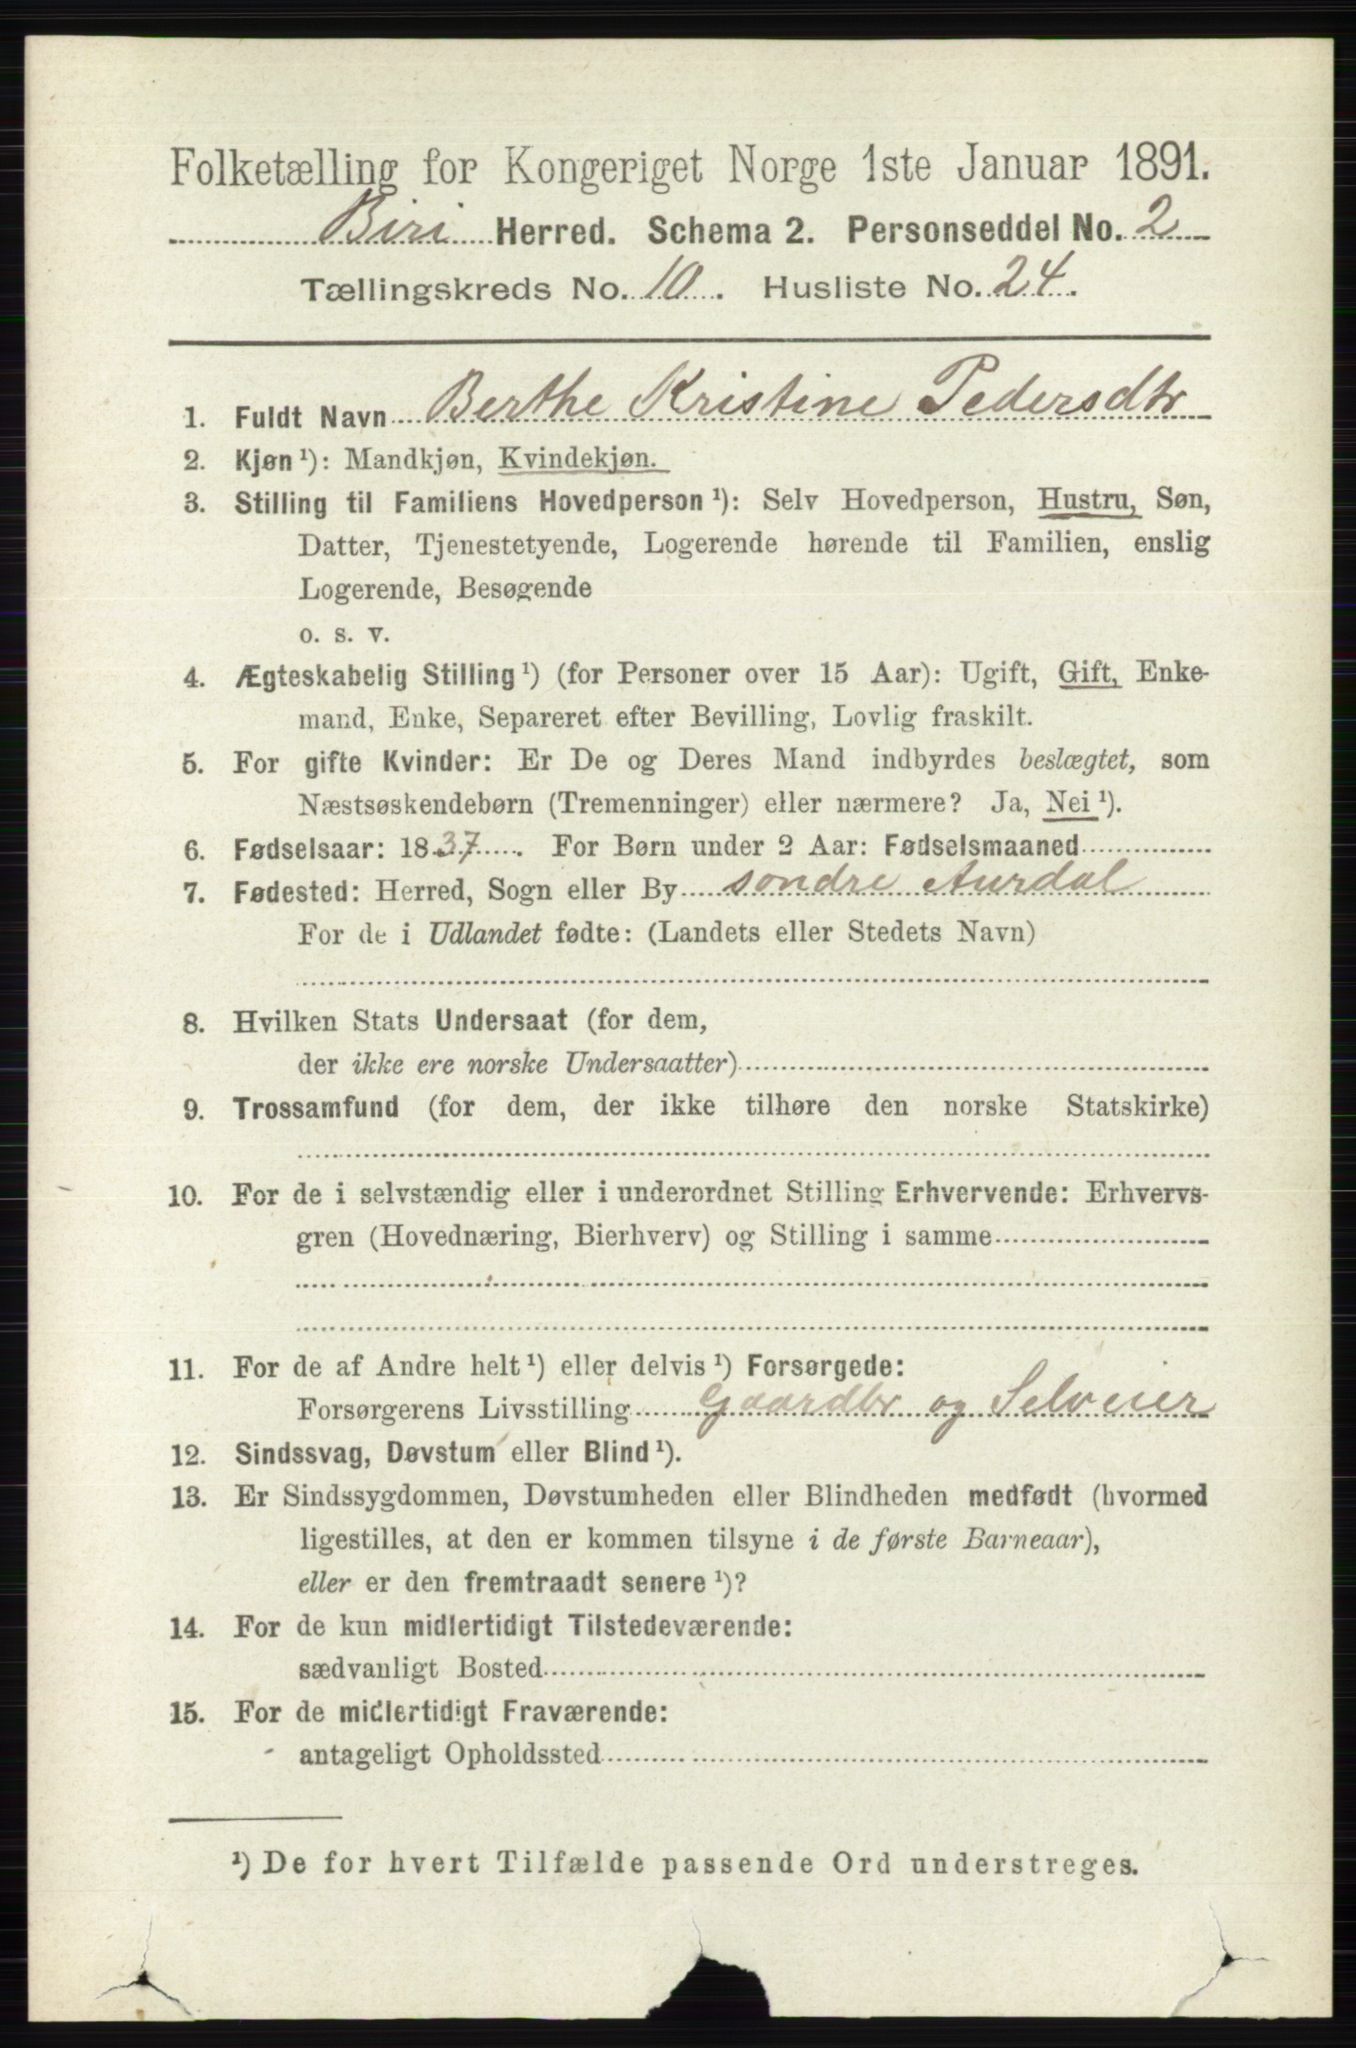 Folketælling for Kongeriget Norge 1ste Januar 1891.
Biri Herred. Schema 2. Personseddel No. 2
Tællingskreds No. 10. Husliste No. 24.
1. Fuldt Navn Berthe Kristine Pedersdtr
2. Kjøn¹): Mandkjøn, Kvindekjøn.
3. Stilling til Familiens Hovedperson¹): Selv Hovedperson, Hustru, Søn,
Datter, Tjenestetyende, Logerende hørende til Familien, enslig
Logerende, Besøgende
o. s. v.
4. Ægteskabelig Stilling¹) (for Personer over 15 Aar): Ugift, Gift, Enke-
mand, Enke, Separeret efter Bevilling, Lovlig fraskilt.
5. For gifte Kvinder: Er De og Deres Mand indbyrdes beslægtet, som
Næstsøskendebørn (Tremenninger) eller nærmere? Ja, Nei¹).
6. Fødselsaar: 1837. For Børn under 2 Aar: Fødselsmaaned
7. Fødested: Herred, Sogn eller By søndre Aurdal
For de i Udlandet fødte: (Landets eller Stedets Navn)
8. Hvilken Stats Undersaat (for dem,
der ikke ere norske Undersaatter)
9. Trossamfund (for dem, der ikke tilhøre den norske Statskirke)
10. For de i selvstændig eller i underordnet Stilling Erhvervende: Erhvervs-
gren (Hovednæring, Bierhverv) og Stilling i samme
11. For de af Andre helt¹) eller delvis¹) Forsørgede:
Forsørgerens Livsstilling Gaardbr og Selveier
12. Sindssvag, Døvstum eller Blind¹).
13. Er Sindssygdommen, Døvstumheden eller Blindheden medfødt (hvormed
ligestilles, at den er kommen tilsyne i de første Barneaar),
eller er den fremtraadt senere¹)?
14. For de kun midlertidigt Tilstedeværende:
sædvanligt Bosted
15. For de midlertidigt Fraværende:
antageligt Opholdssted
¹) De for hvert Tilfælde passende Ord understreges.